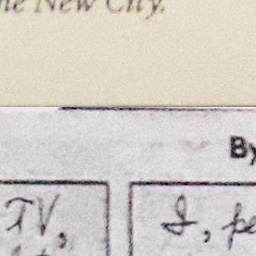 the New City.
By
IV,
I, pe